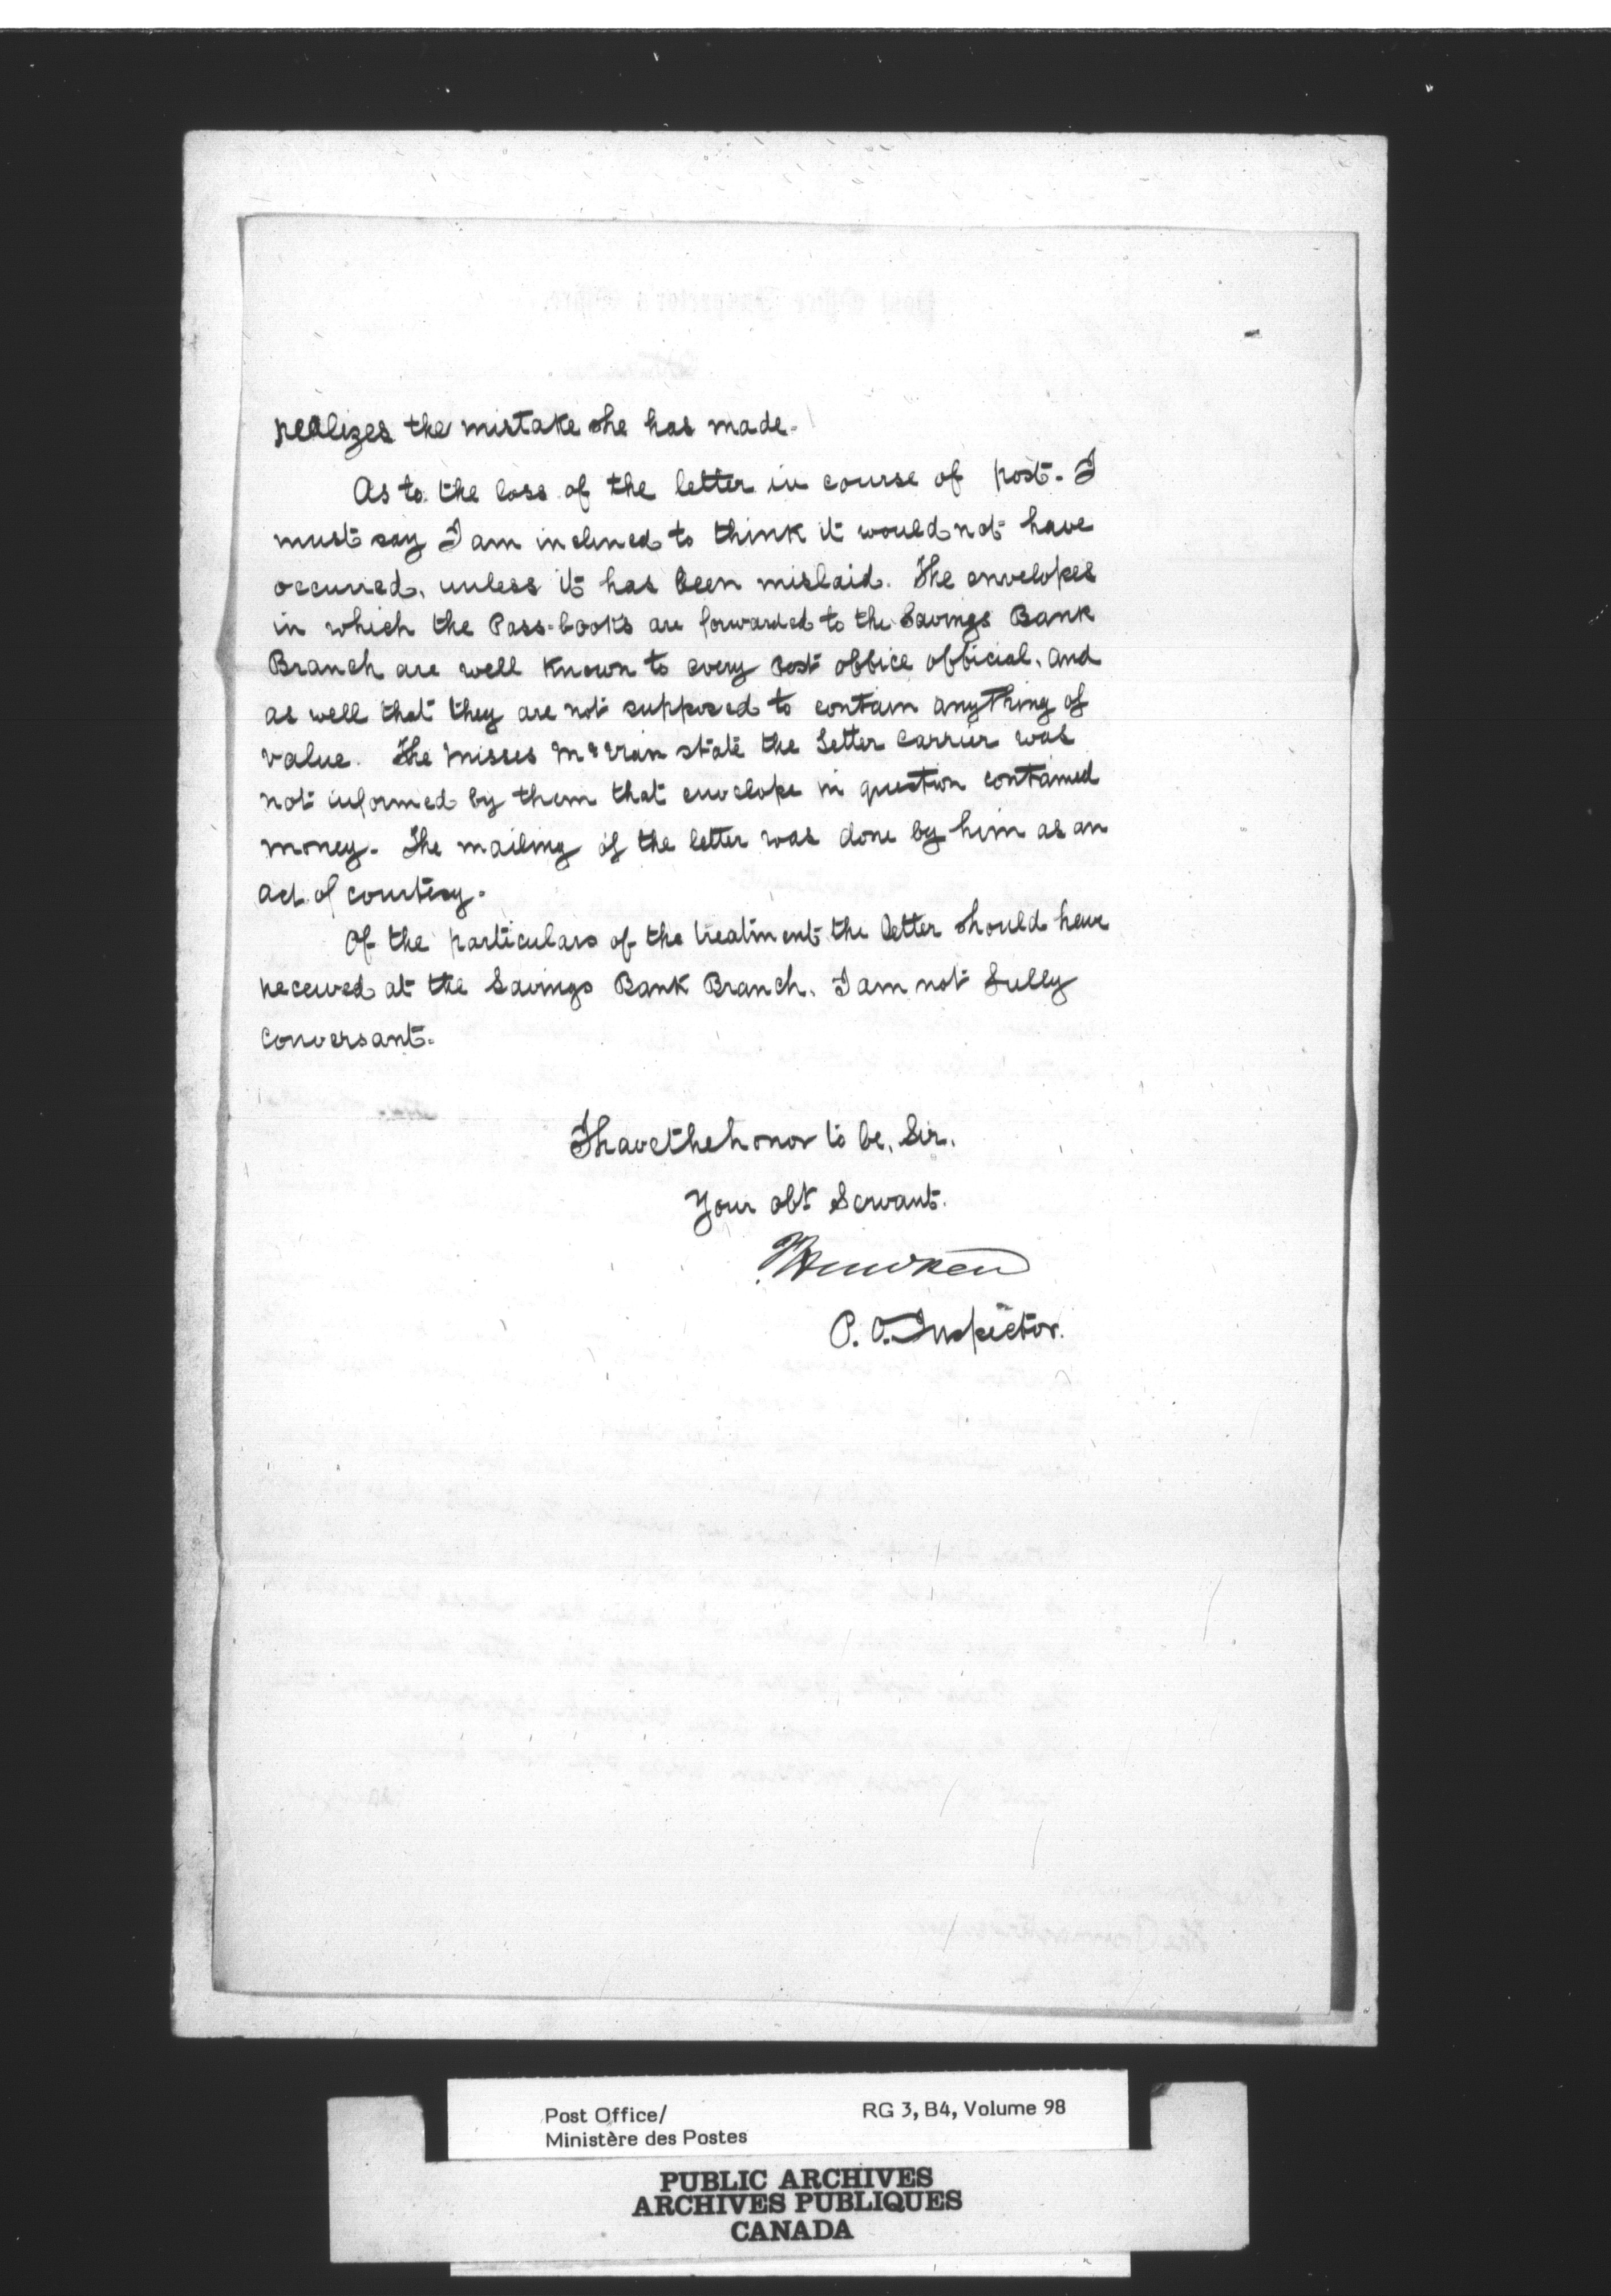 realizes the mistake she has made.
As to the loss of the letter in course of post. I
must say I am inclined to think it would not have
occurred, unless it has been mislaid. The envelopes
in which the Pass-books are forwarded to the Savings Bank
Branch are well known to every Post office official, and
as well that they are not supposed to contain anything of
value. The Misses state the Letter Carrier was
not informed by them that envelope in question contained
money. The mailing of the letter was done by him as an
act of courtesy.
Of the particulars of the treatment the letter should have
received at the Savings Bank Branch, I am not fully
conversant.
I have the honor to be, Sir,
Your obt Servant.
P. O. Inspector.
Post Office/
Ministère des Postes
RG 3, B4, Volume 98
PUBLIC ARCHIVES
ARCHIVES PUBLIQUES
CANADA